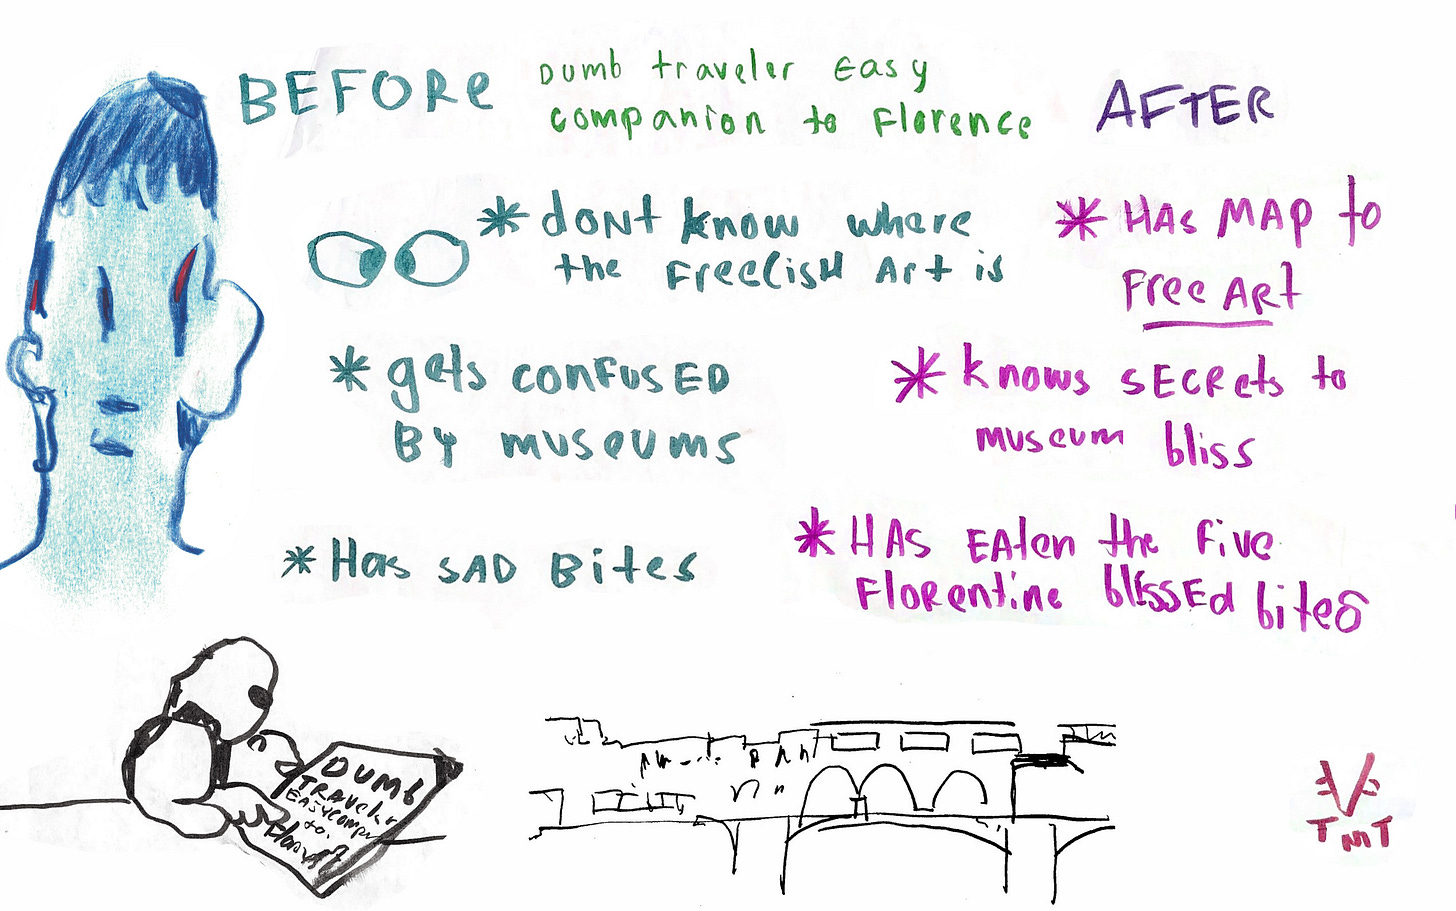 BEFORe
Dumb traveler Easy
companion to Florence
AFTER
* dONt know where
the Freelish Art is
* gets confusED
By museums
* Has SAD Bites
* HAs MAp to
Free ARt
* knows sECRets to
museum bliss
* HAs EAten the Five
FloRentine blissEd bites
DUMb
TRAveler
EASy comp
to
TMT